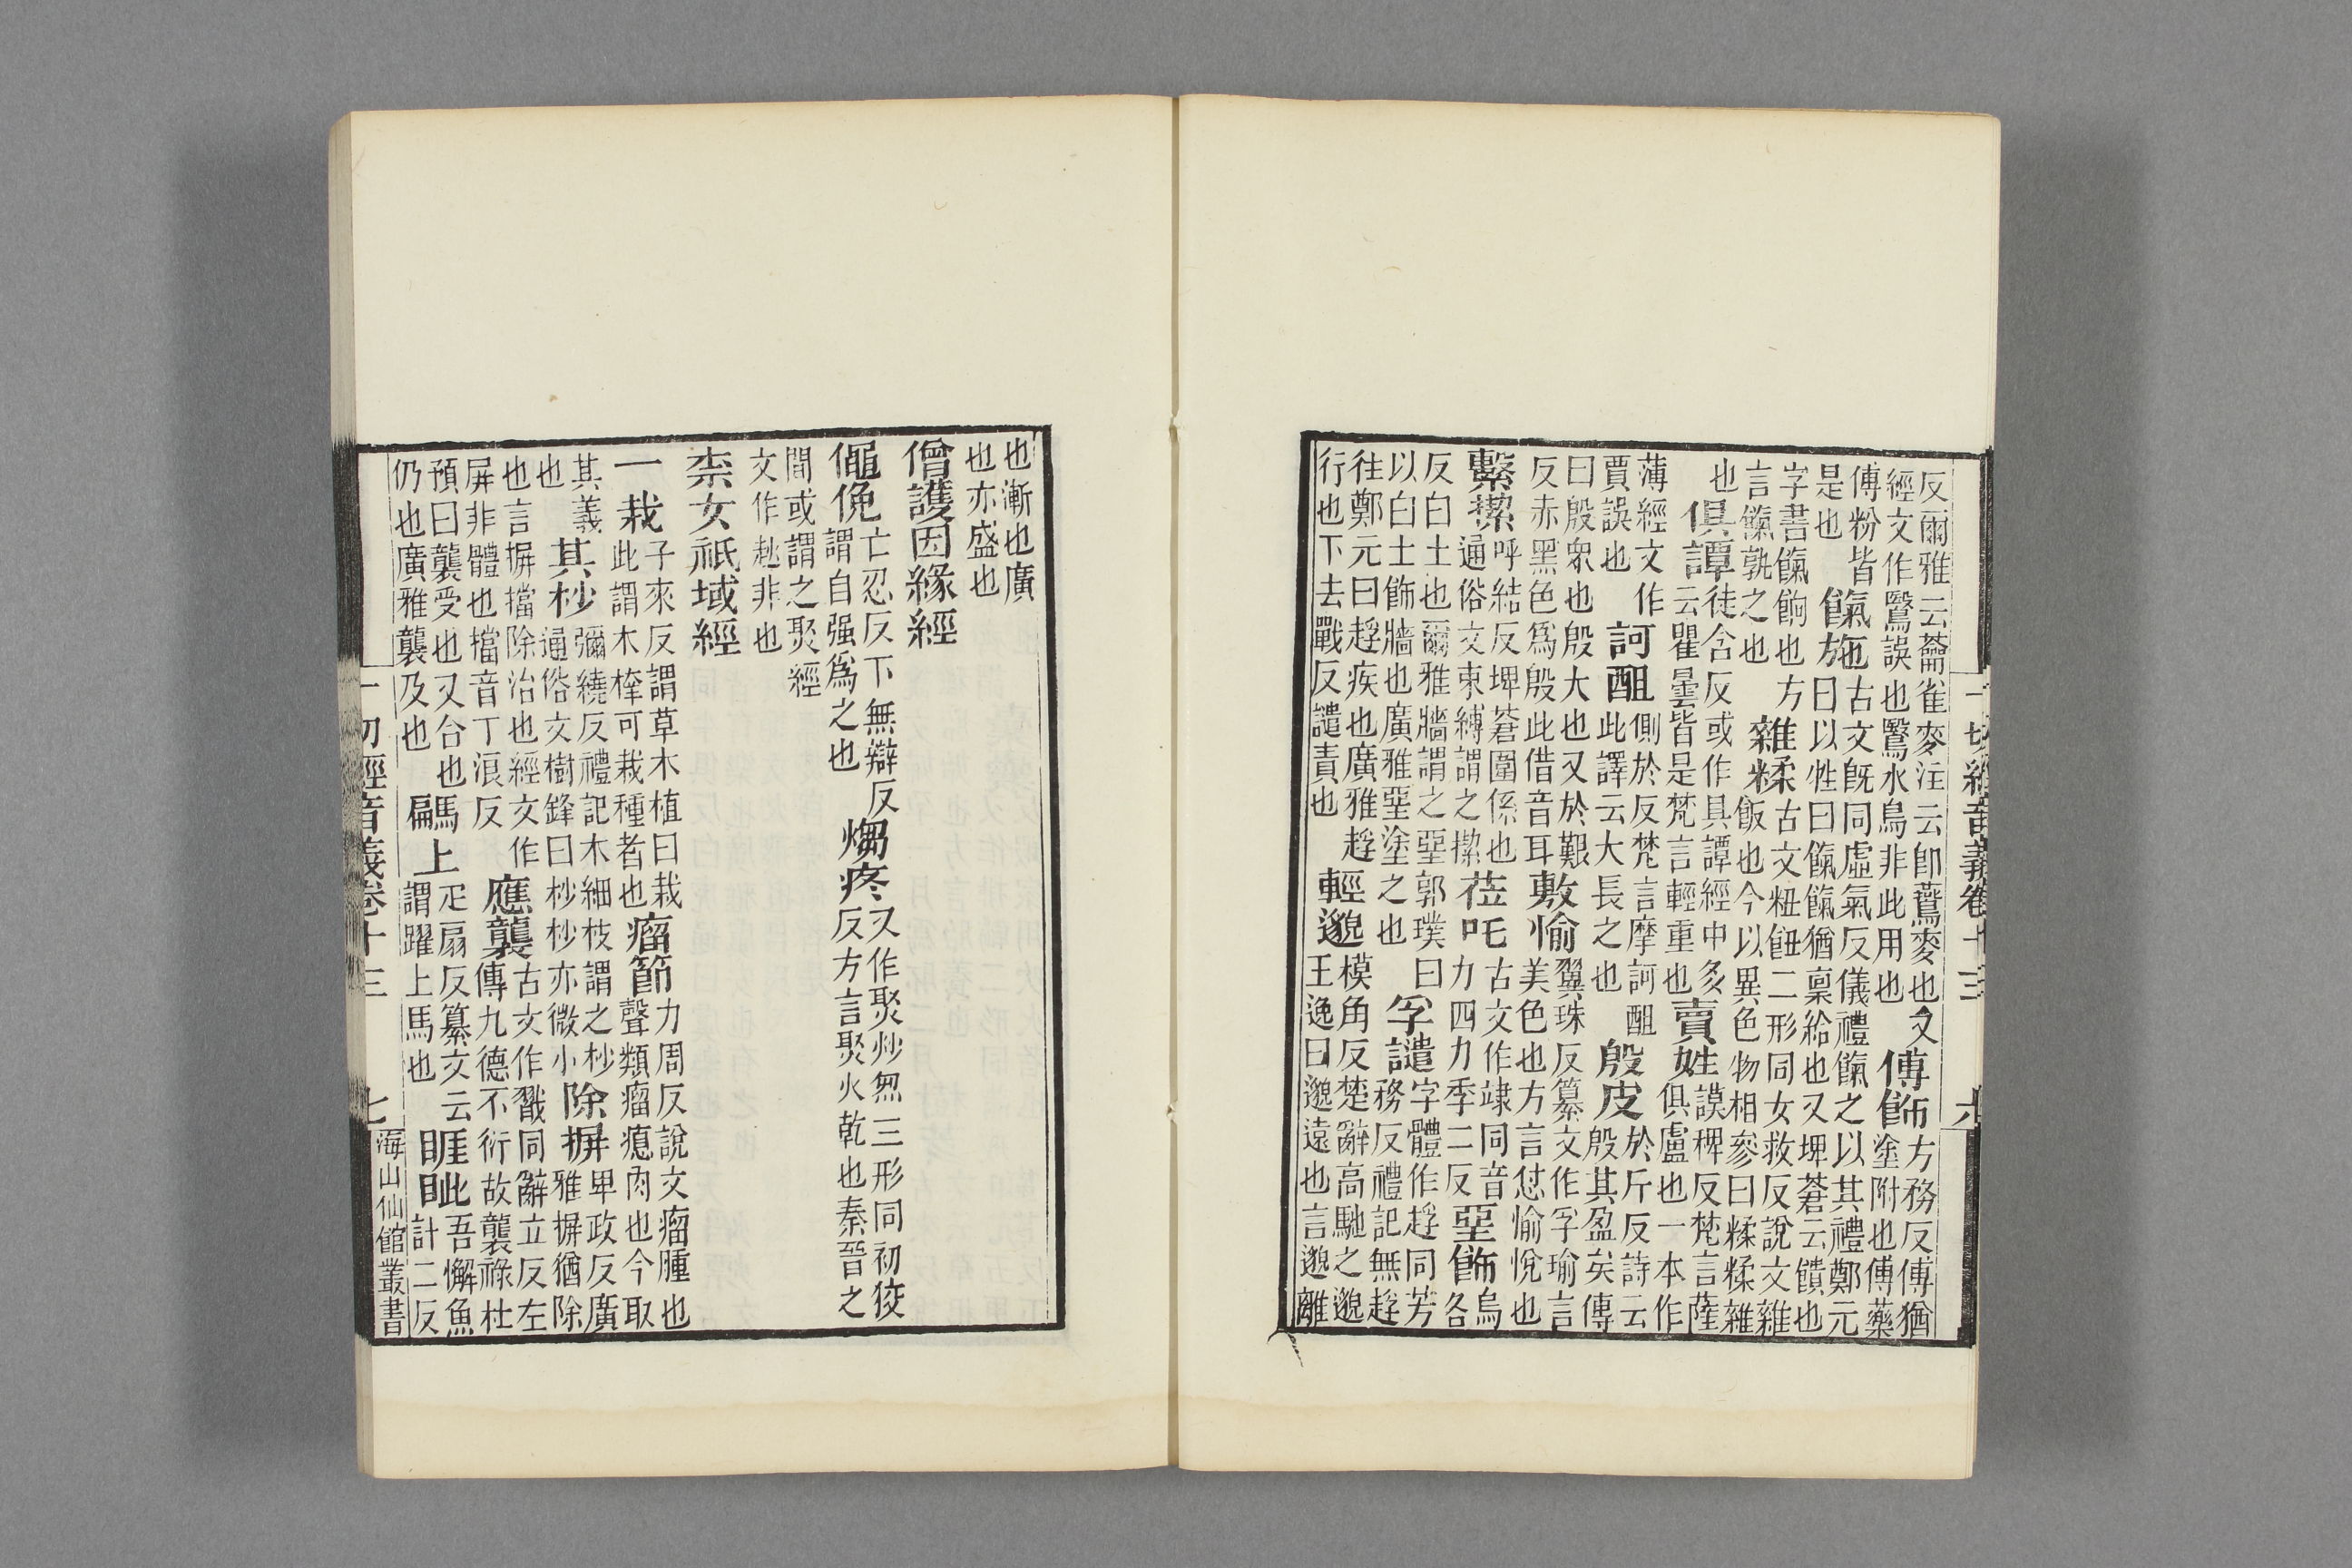 反爾雅云蕍雀麥注云卽䕮麥也又
經文作鷖誤也鷖水鳥非此用也
傅飾
方務反傅猶
塗附也傅藥
傅粉皆
是也
餼施
古文旣同虛氣反儀禮餼之以其禮鄭元
曰以牲曰餼餼猶稟給也又埤蒼云饋也
字書餼餉也方
言餼孰之也
雜糅
古文粈二形同女救反說文雜
飯也今以異色物相參曰糅糅雜
也
俱譚
徒含反或作具譚經中多
云瞿曇皆是梵言輕重也
賣姓
謨稗反梵言薩
俱盧也一本作
薄經文作
賈誤也
訶䣯
側於反梵言摩訶䣯
此譯云大長之也
殷皮
於斤反詩云
殷其盈矣傳
曰殷衆也殷大也又於艱
反赤黑色爲殷此借音耳
敷愉
翼珠反纂文作孚瑜言
美色也方言怤愉悅也
繫㓗
呼結反埤蒼圍係也
通俗文束縛謂之
莅吒
古文作竦同音
力四力季二反
堊飾
烏
各
反白土也爾雅牆謂之堊郭璞曰
以白土飾牆也廣雅堊塗之也
孚譴
字體作䟔同芳
務反禮記無䟔
往鄭元曰䟔疾也廣雅䟔
行也下去戰反譴責也
輕邈
模角反楚辭高馳之邈邈
王逸曰邈遠也言邈離
一切經音義卷十三
六
也漸也廣
也亦盛也
僧護因緣經
僶俛
亡忍反下無辯反
謂自强爲之也
疼
又作聚炒三形同初狡
反方言聚火乾也秦晉之
間或謂之聚經
文作趒非也
柰女祇域經
一栽
子來反謂草木植曰栽
此謂木榁可栽種者也
瘤節
力周反說文瘤腫也
聲類瘤瘜肉也今取
其義
也
其杪
彌繞反禮記木細枝謂之杪
通俗文樹鋒曰杪杪亦微小
除摒
卑政反廣
雅摒猶除
也言摒擋除治也經文作
屏非體也擋音丁浪反
應襲
古文作戳同辭立反左
傳九德不衍故襲祿杜
預曰襲受也又合也
仍也廣雅襲及也
騗上
疋扇反纂文云
謂躍上馬也
睚眦
吾懈魚
計二反
一切經音義卷十三
七
海山仙館叢書